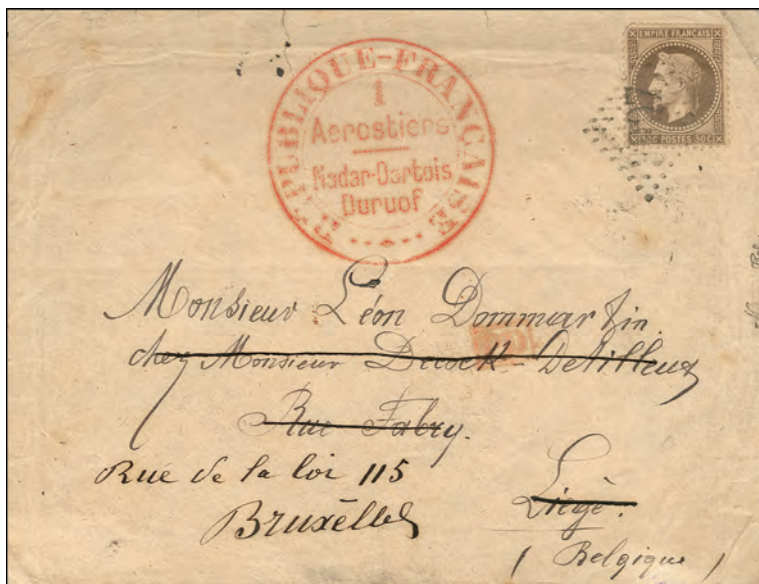 RÉPUBLIQUE-FRANÇAISE
1
Aerostiers
Nadar-Dartois
Duruof
EMPIRE FRANÇAIS
30C POSTES 30C
Monsieur Léon Dommartin.
chez Monsieur
Rue Fabry.
Rue de la loi 115
Bruxelles
Liège.
( Belgique )